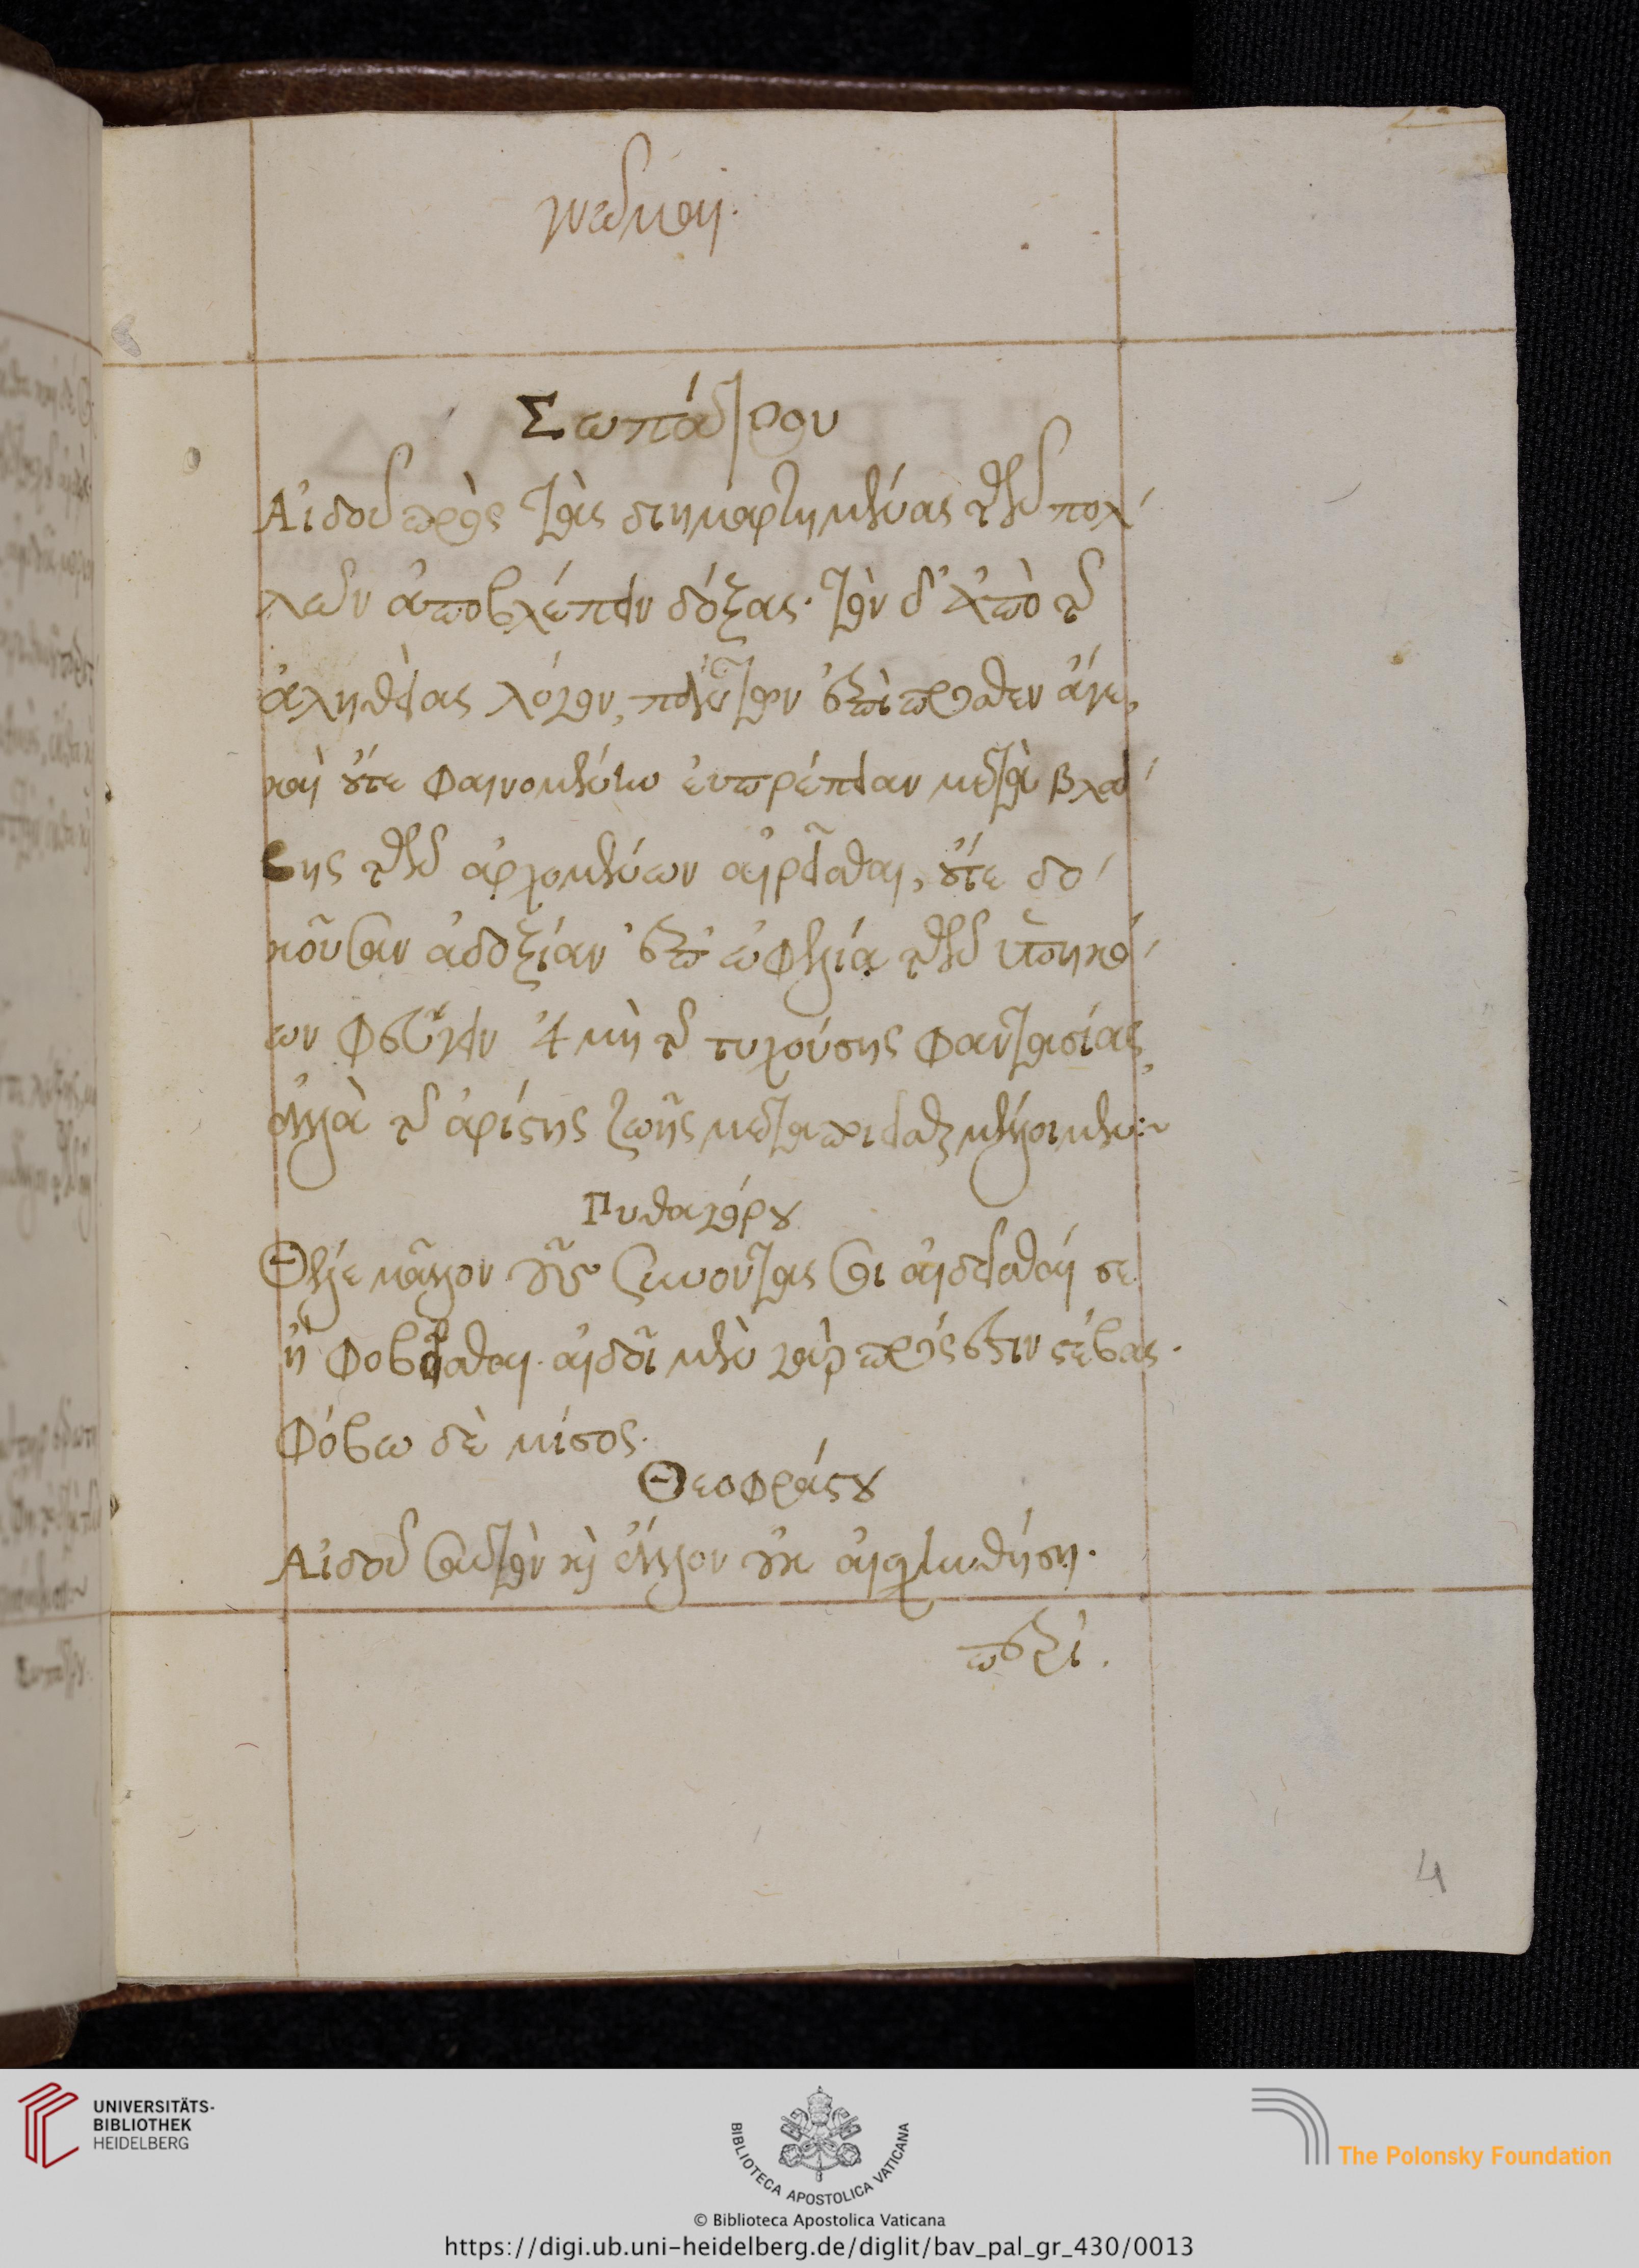 γνῶμαι.
Σωπάτρου
Αἰδοῦ πρὸς τὰς διημαρτημένας τῶν πολ
λῶν ἀποβλέπειν δόξας· τὸν δ' ἀπὸ τῆς
ἀληθείας λόγον, πλεῖστον ἐπίπροσθεν ἄγε,
καὶ οὔτε φαινομένην εὐπρέπειαν μετὰ βλά
βης τῶν ἀρχομένων αἱρεῖσθαι, οὔτε δο
κοῦσαν ἀδοξίαν ἐπ' ὠφελεία τῶν ὑπηκό
ων φεύγειν εἰ μὴ τῆς τυχούσης φαντασίας,
ἀλλὰ τῆς ἀρίστης ζωῆς μεταποιεῖσθαι μέλοι μεν:~
Πυθαγόρου
Θέλε μᾶλλον τοὺς συνόντας σοι αἰδεῖσθαί σε
ἢ φοβεῖσθαι. αἰδοῖ μὲν γὰρ πρόσεστιν σέβας.
φόβω δὲ μῖσος.
Θεοφράστου
Αἰδοῦ σαυτὸν καὶ ἄλλον οὐκ αἰσχυνθήση.
περὶ.
4
UNIVERSITÄTS-
BIBLIOTHEK
HEIDELBERG
BIBLIOTECA APOSTOLICA VATICANA
The Polonsky Foundation
© Biblioteca Apostolica Vaticana
https://digi.ub.uni-heidelberg.de/diglit/bav_pal_gr_430/0013